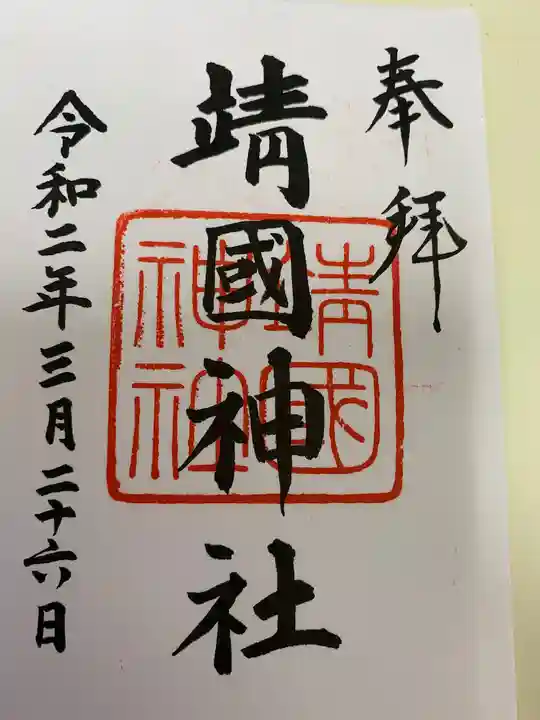 奉拝
靖國神社
靖國
神社
令和二年三月二十六日